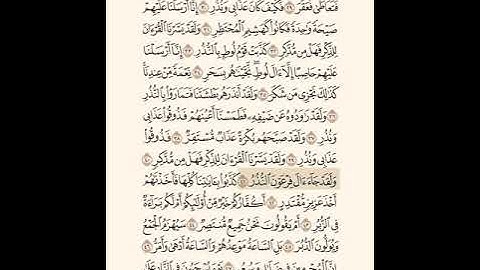 فَتَعَاطَىٰ فَعَقَرَ ٢٩ فَكَيْفَ كَانَ عَذَابِي وَنُذُرِ ٣٠ إِنَّآ أَرْسَلْنَا عَلَيْهِمْ
صَيْحَةً وَٰحِدَةً فَكَانُوا۟ كَهَشِيمِ ٱلْمُحْتَظِرِ ٣١ وَلَقَدْ يَسَّرْنَا ٱلْقُرْءَانَ
لِلذِّكْرِ فَهَلْ مِن مُّدَّكِرٍ ٣٢ كَذَّبَتْ قَوْمُ لُوطٍۭ بِٱلنُّذُرِ ٣٣ إِنَّآ أَرْسَلْنَا
عَلَيْهِمْ حَاصِبًا إِلَّآ ءَالَ لُوطٍ نَّجَّيْنَٰهُم بِسَحَرٍ ٣٤ نِّعْمَةً مِّنْ عِندِنَا
كَذَٰلِكَ نَجْزِي مَن شَكَرَ ٣٥ وَلَقَدْ أَنذَرَهُم بَطْشَتَنَا فَتَمَارَوْا۟ بِٱلنُّذُرِ
٣٦ وَلَقَدْ رَٰوَدُوهُ عَن ضَيْفِهِۦ فَطَمَسْنَآ أَعْيُنَهُمْ فَذُوقُوا۟ عَذَابِي
وَنُذُرِ ٣٧ وَلَقَدْ صَبَّحَهُم بُكْرَةً عَذَابٌ مُّسْتَقِرٌّ ٣٨ فَذُوقُوا۟
عَذَابِي وَنُذُرِ ٣٩ وَلَقَدْ يَسَّرْنَا ٱلْقُرْءَانَ لِلذِّكْرِ فَهَلْ مِن مُّدَّكِرٍ ٤٠
وَلَقَدْ جَآءَ ءَالَ فِرْعَوْنَ ٱلنُّذُرُ ٤١ كَذَّبُوا۟ بِـَٔايَٰتِنَا كُلِّهَا فَأَخَذْنَٰهُمْ
أَخْذَ عَزِيزٍ مُّقْتَدِرٍ ٤٢ أَكُفَّارُكُمْ خَيْرٌ مِّنْ أُو۟لَٰٓئِكُمْ أَمْ لَكُم بَرَآءَةٌ
فِي ٱلزُّبُرِ ٤٣ أَمْ يَقُولُونَ نَحْنُ جَمِيعٌ مُّنتَصِرٌ ٤٤ سَيُهْزَمُ ٱلْجَمْعُ
وَيُوَلُّونَ ٱلدُّبُرَ ٤٥ بَلِ ٱلسَّاعَةُ مَوْعِدُهُمْ وَٱلسَّاعَةُ أَدْهَىٰ وَأَمَرُّ ٤٦
إِنَّ ٱلْمُجْرِمِينَ فِي ضَلَٰلٍ وَسُعُرٍ ٤٧ يَوْمَ يُسْحَبُونَ فِي ٱلنَّارِ عَلَىٰ